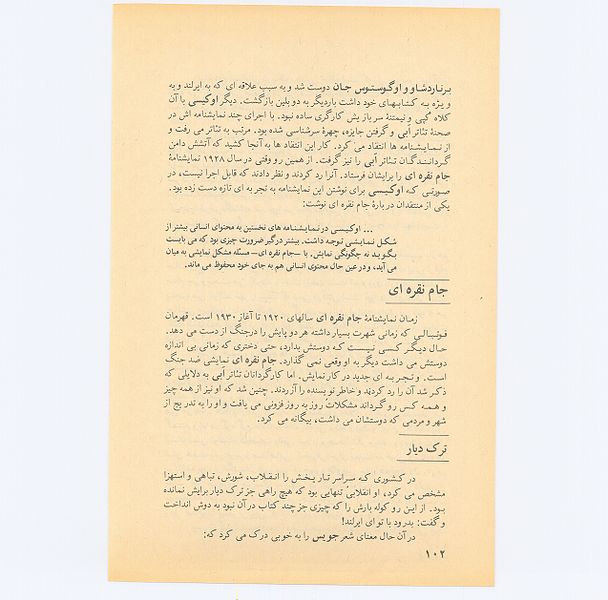 برناردشاو و اوگوستوس جان دوست شد و به سبب علاقه ای که به ایرلند و به
ویژه به کتابهای خود داشت باردیگر به دوبلین بازگشت. دیگر اوکیسی با آن
کلاه گپی و نیمتنۀ سربازیش کارگری ساده نبود. با اجرای چند نمایشنامه اش در
صحنۀ تئاتر اَبی و گرفتن جایزه، چهرۀ سرشناسی شده بود. مرتب به تئاتر می رفت و
از نمایشنامه ها انتقاد می کرد. کار این انتقاد ها به آنجا کشید که آتشش دامن
گردانندگان تئاتر اَبی را نیز گرفت. از همین رو وقتی در سال ۱۹۲۸ نمایشنامۀ
جام نقره ای را برایشان فرستاد. آنرا رد کردند و نظر دادند که قابل اجرا نیست، در
صورتی که اوکیسی برای نوشتن این نمایشنامه به تجربه ای تازه دست زده بود.
یکی از منتقدان دربارۀ جام نقره ای نوشت:
... اوکیسی در نمایشنامه های نخستین به محتوای انسانی بیشتر از
شکل نمایشی توجه داشت. بیشتر درگیر ضرورت چیزی بود که می بایست
بگوید نه چگونگی نمایش. با —جام نقره ای— مسئله مشکل نمایشی به میان
می آید، و در عین حال محتوی انسانی هم به جای خود محفوظ می ماند.
جام نقره ای
زمان نمایشنامۀ جام نقره ای سالهای ۱۹۲۰ تا آغاز ۱۹۳۰ است. قهرمان
فوتبالی که زمانی شهرت بسیار داشته هر دو پایش را درجنگ از دست می دهد.
حال دیگر کسی نیست که دوستش بدارد، حتی دختری که زمانی بی اندازه
دوستش می داشت دیگر به او وقعی نمی گذارد. جام نقره ای نمایشی ضد جنگ
است. و تجربه ای جدید در کار نمایش. اما کارگردانان تئاتر اَبی به دلایلی که
ذکر شد آن را رد کردند و خاطر نویسنده را آزردند. چنین شد که او نیز از همه چیز
و همه کس رو گرداند مشکلات روز به روز فزونی می یافت و او را به تدریج از
شهر و مردمی که دوستشان می داشت، بیگانه می کرد.
ترک دیار
در کشوری که سراسر تاریخش را انقلاب، شورش، تباهی و استهزا
مشخص می کرد، او انقلابی تنهایی بود که هیچ راهی جز ترک دیار برایش نمانده
بود. از این رو کوله بارش را که چیزی جز چند کتاب در آن نبود به دوش انداخت
و گفت: بدرود با تو ای ایرلند!
در آن حال معنای شعر جویس را به خوبی درک می کرد که:
۱۰۲